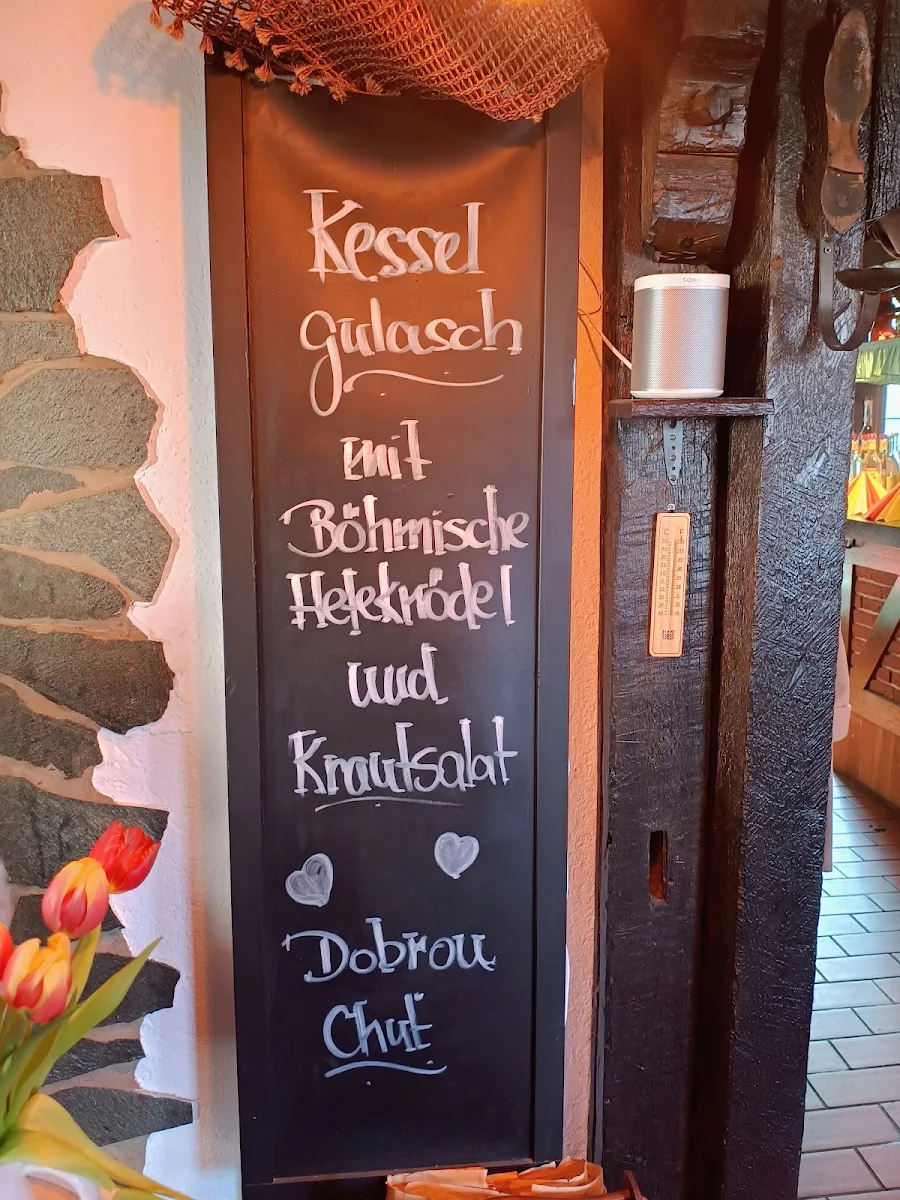 Kessel
gulasch
mit
Böhmische
Hefeknödel
und
Krautsalat
Dobrou
Chuť
SONOS
C F